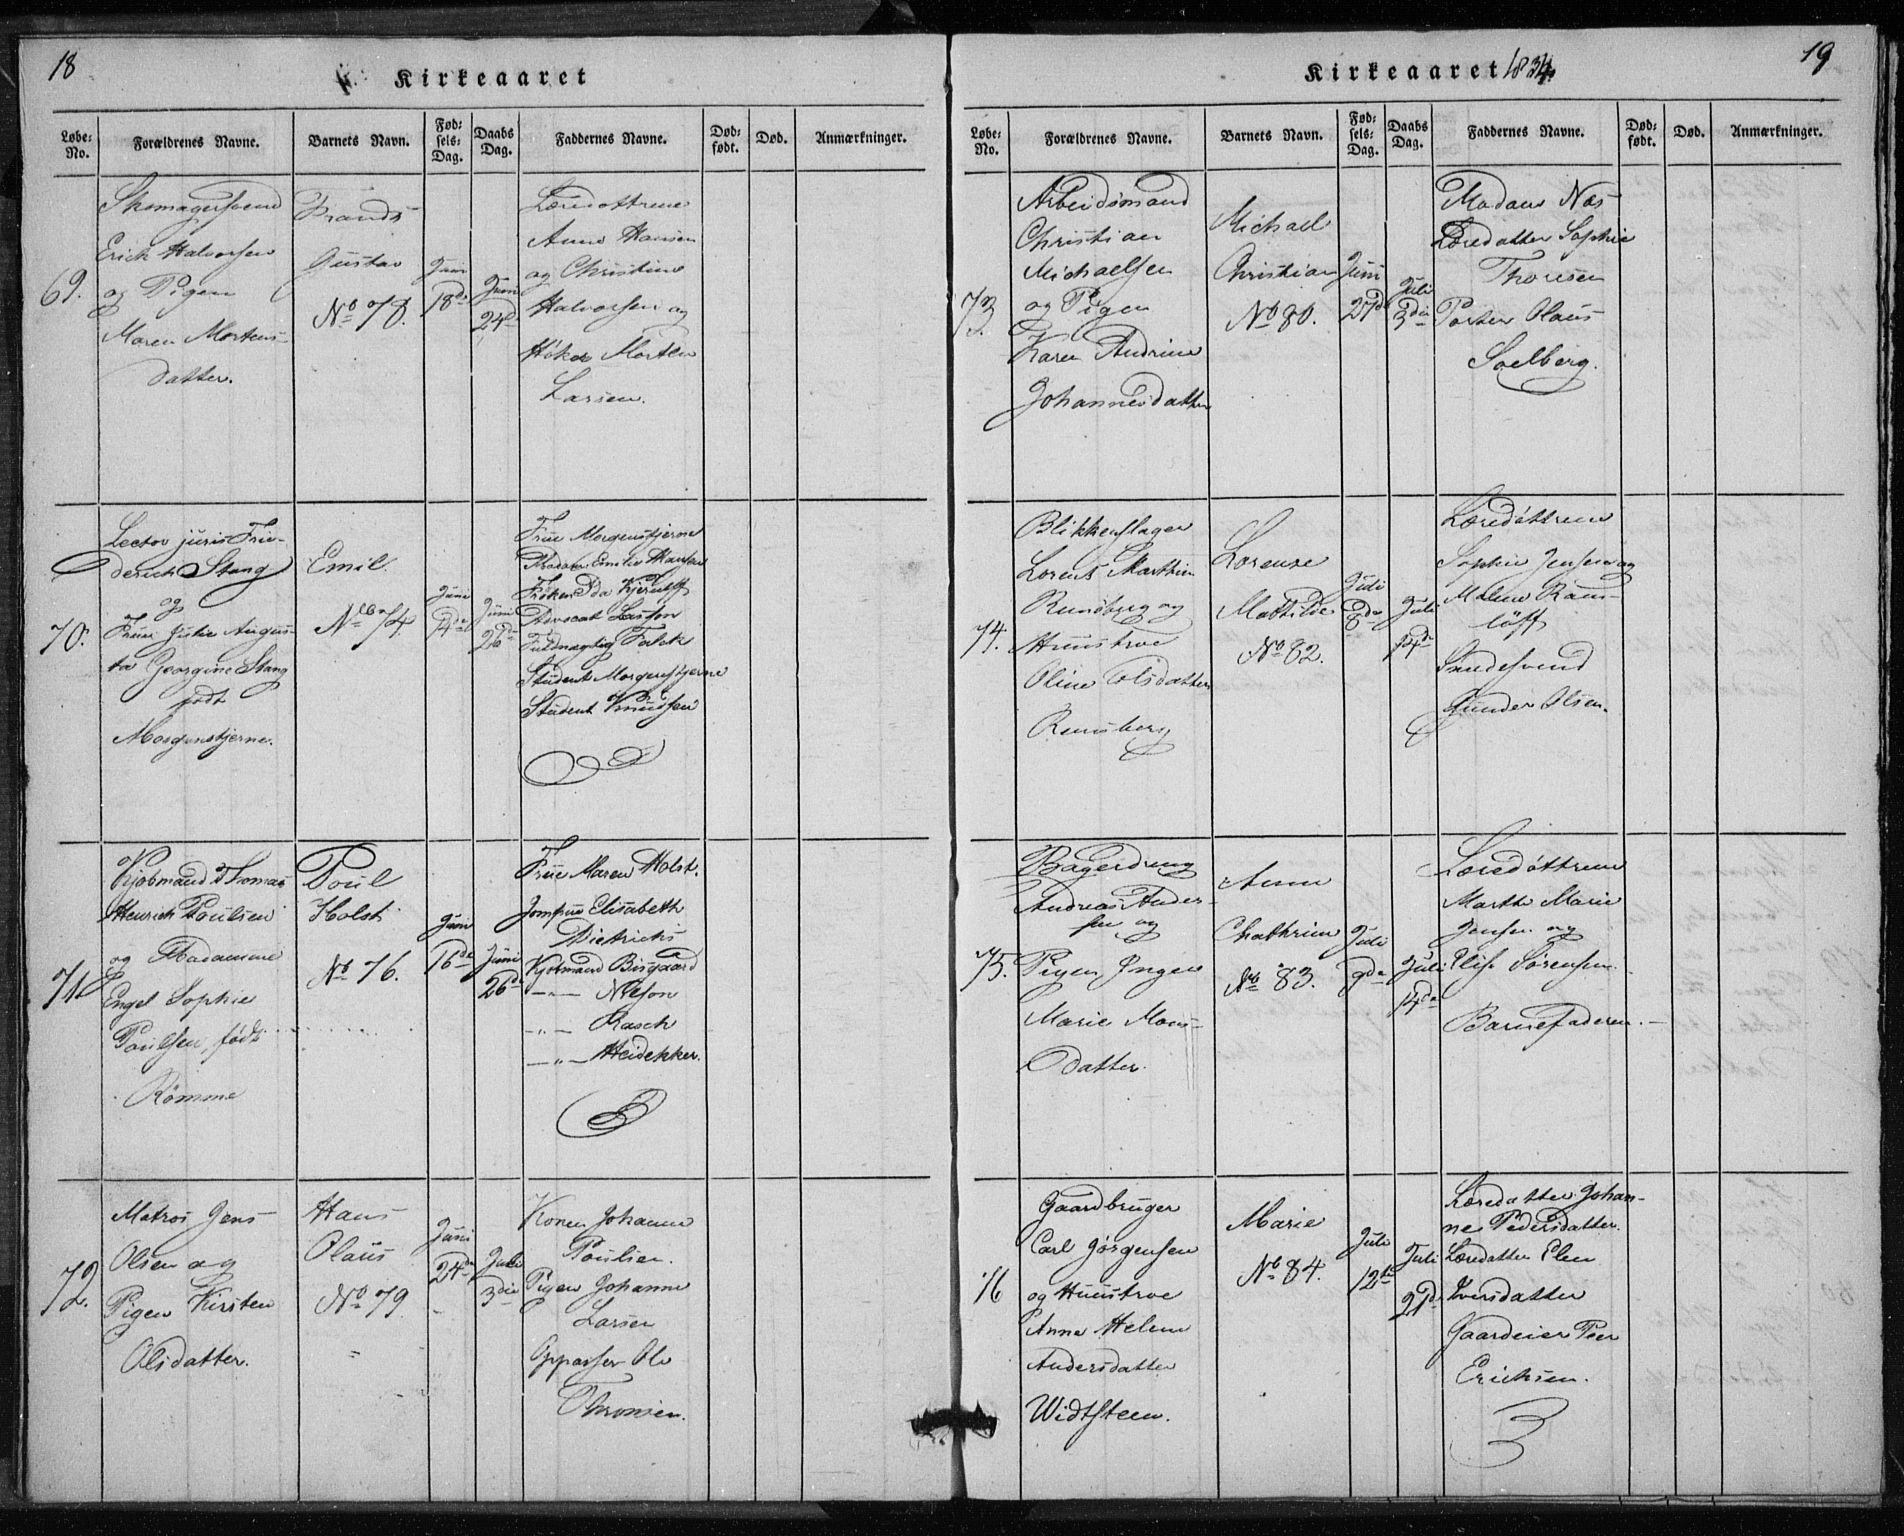 18
Kirkeaaret
Løbe-No. Forældrenes Navne. Barnets Navn. Fødsels-Dag. Daabs Dag. Faddernes Navne. Dødfødt. Død. Anmærkninger.
69.
Skomagersvend
Erich Halvorsen
og Pigen
Maren Mortens-
datter.
Frands
Gustav
No 78.
Juni
18de
Juni
24de
Læredøttrene
Anne Hansen
og Christine
Halvorsen og
Høker Morten
Larsen.
70.
Lector juris Frie-
derich Stang
og
Frue Julie Augus-
ta Georgine Stang
født
Morgenstjerne.
Emil.
No 74.
Juni
4de
Juni
26de
Frue Morgenstjerne
Madam Emilie Hansen
Frøken Ida Kjerulff
Advocat Lasson
Fuldmægtig Falck
Student Morgenstjerne
Student Knudsen
71.
Kjøbmand Thomas
Henrich Poulsen
og Madamme
Engel Sophie
Poulsen, født
Rømme
Poul
Holst
No 76.
Juni
16de
Juni
26de
Frue Maren Holst.
Jomfrue Elisabeth
Dietrichs
Kjøbmand Bisgaard
—〃— Nilson
—〃— Rasch
—〃— Heidekker.
72.
Matros Jens
Olsen og
Pigen Kirsten
Olsdatter.
Hans
Olaus
No 79
Juni
24de
Juli
3die
Konen Johanne
Poulsen.
Pigen Johanne
Larsen
Oppasser Ole
Thronsen.
19
Kirkeaaret 1834
Løbe-No. Forældrenes Navne. Barnets Navn. Fødsels-Dag. Daabs Dag. Faddernes Navne. Dødfødt. Død. Anmærkninger.
73.
Arbeidsmand
Christian
Michaelsen
og Pigen
Karen Andrine
Johannesdatter
Michael
Christian
No 80.
Juni
27de
Juli
3die
Madam Næs
Læredatter Sophie
Thoresen
Porter Olaus
Soelberg.
74.
Blikkenslager
Lorens Marthin
Rundberg og
Huustroe
Oline Olsdatter
Rundberg
Lorenze
Mathilde
No 82.
Juli
8de
Juli
14de
Læredøttrene
Sophie Jensen og
Malene Rans-
løff
Smedesvend
Gunder Olsen.
75.
Bagerdreng
Andreas Ander-
sen og
Pigen Inger
Marie Mons-
datter.
Anne
Chathrine
No 83.
Juli
9de
Juli
14de
Læredøttrene
Marthe Marie
Jensen og
Elise Sørensen.
Barnefaderen.
76
Gaardbruger
Carl Jørgensen
og Huustroe
Anne Helene
Andersdatter
Widtsteen.
Marie
No 84.
Juli
12te
Juli
21de
Læredatter Johan-
ne Pedersdatter.
Læredatter Elen
Iversdatter
Gaardeier Peer
Erichsen.